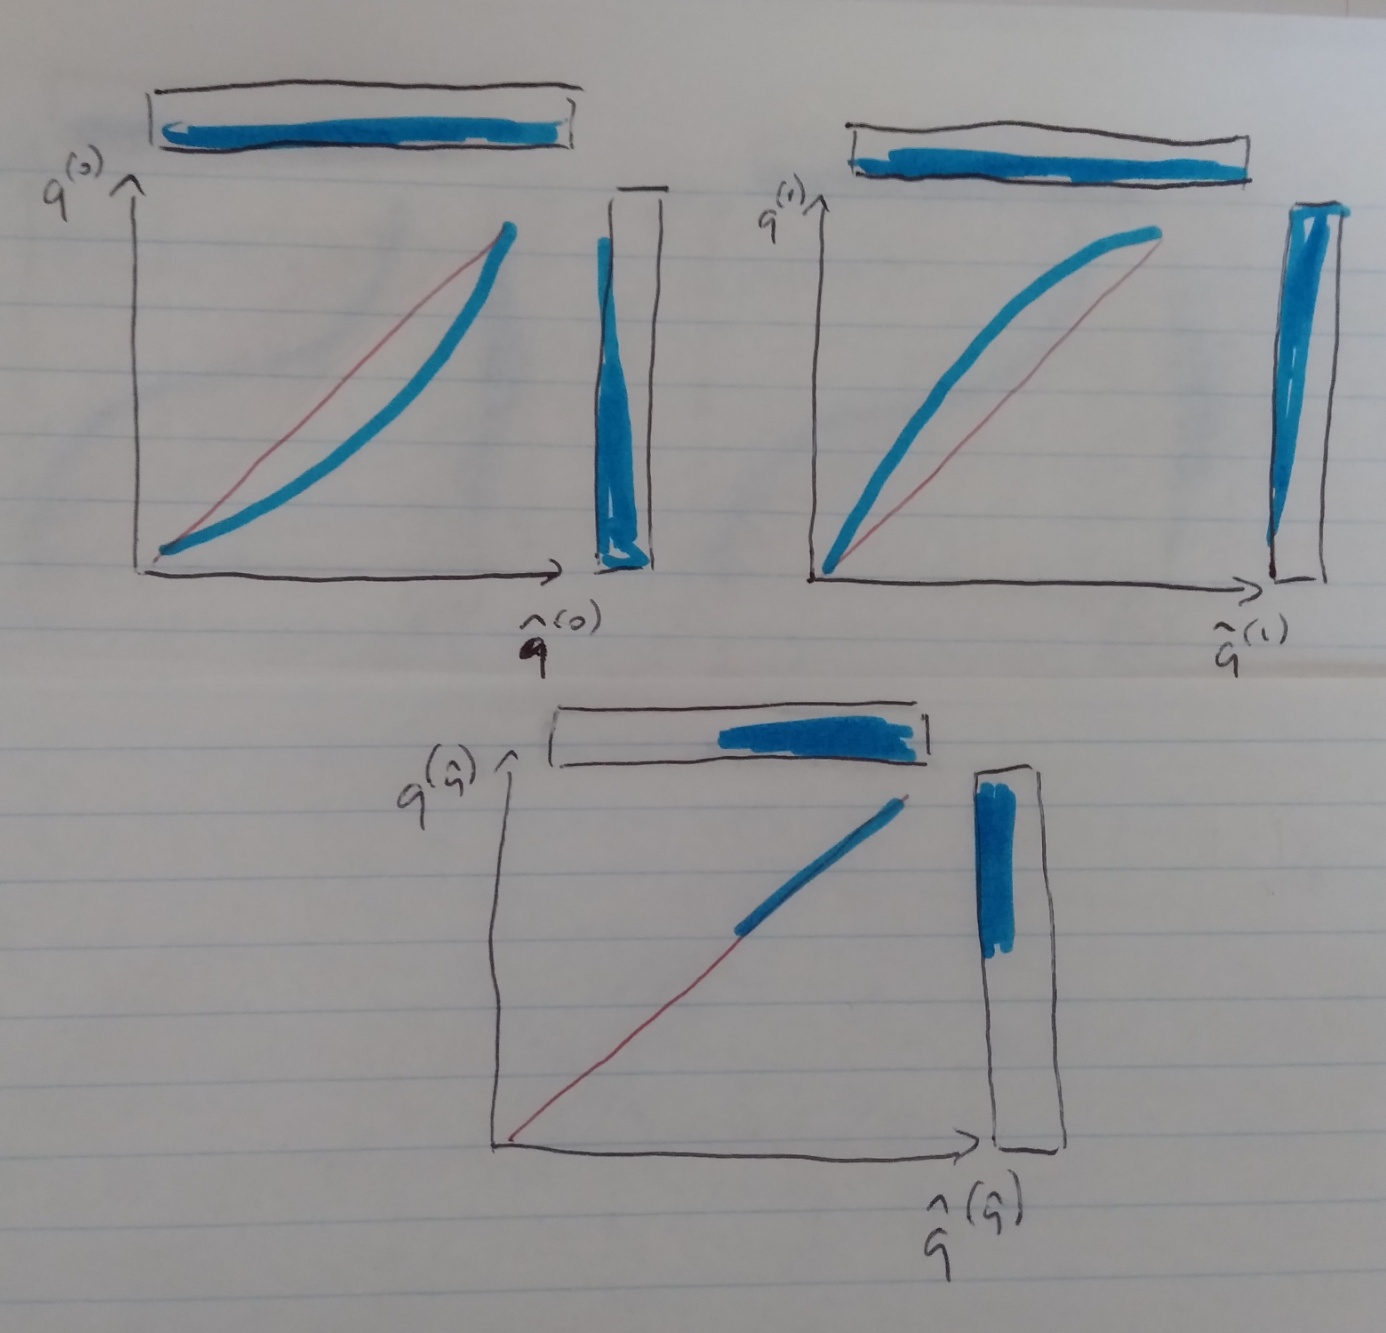 q^(0)
q̂^(0)
q^(1)
q̂^(1)
q^(q̂)
q̂^(q̂)